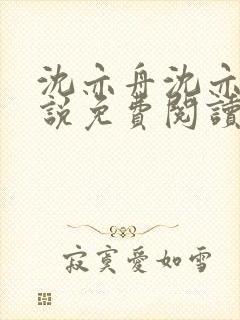 沈亦舟沈亦
說免費閱讀
寂寞愛如雪